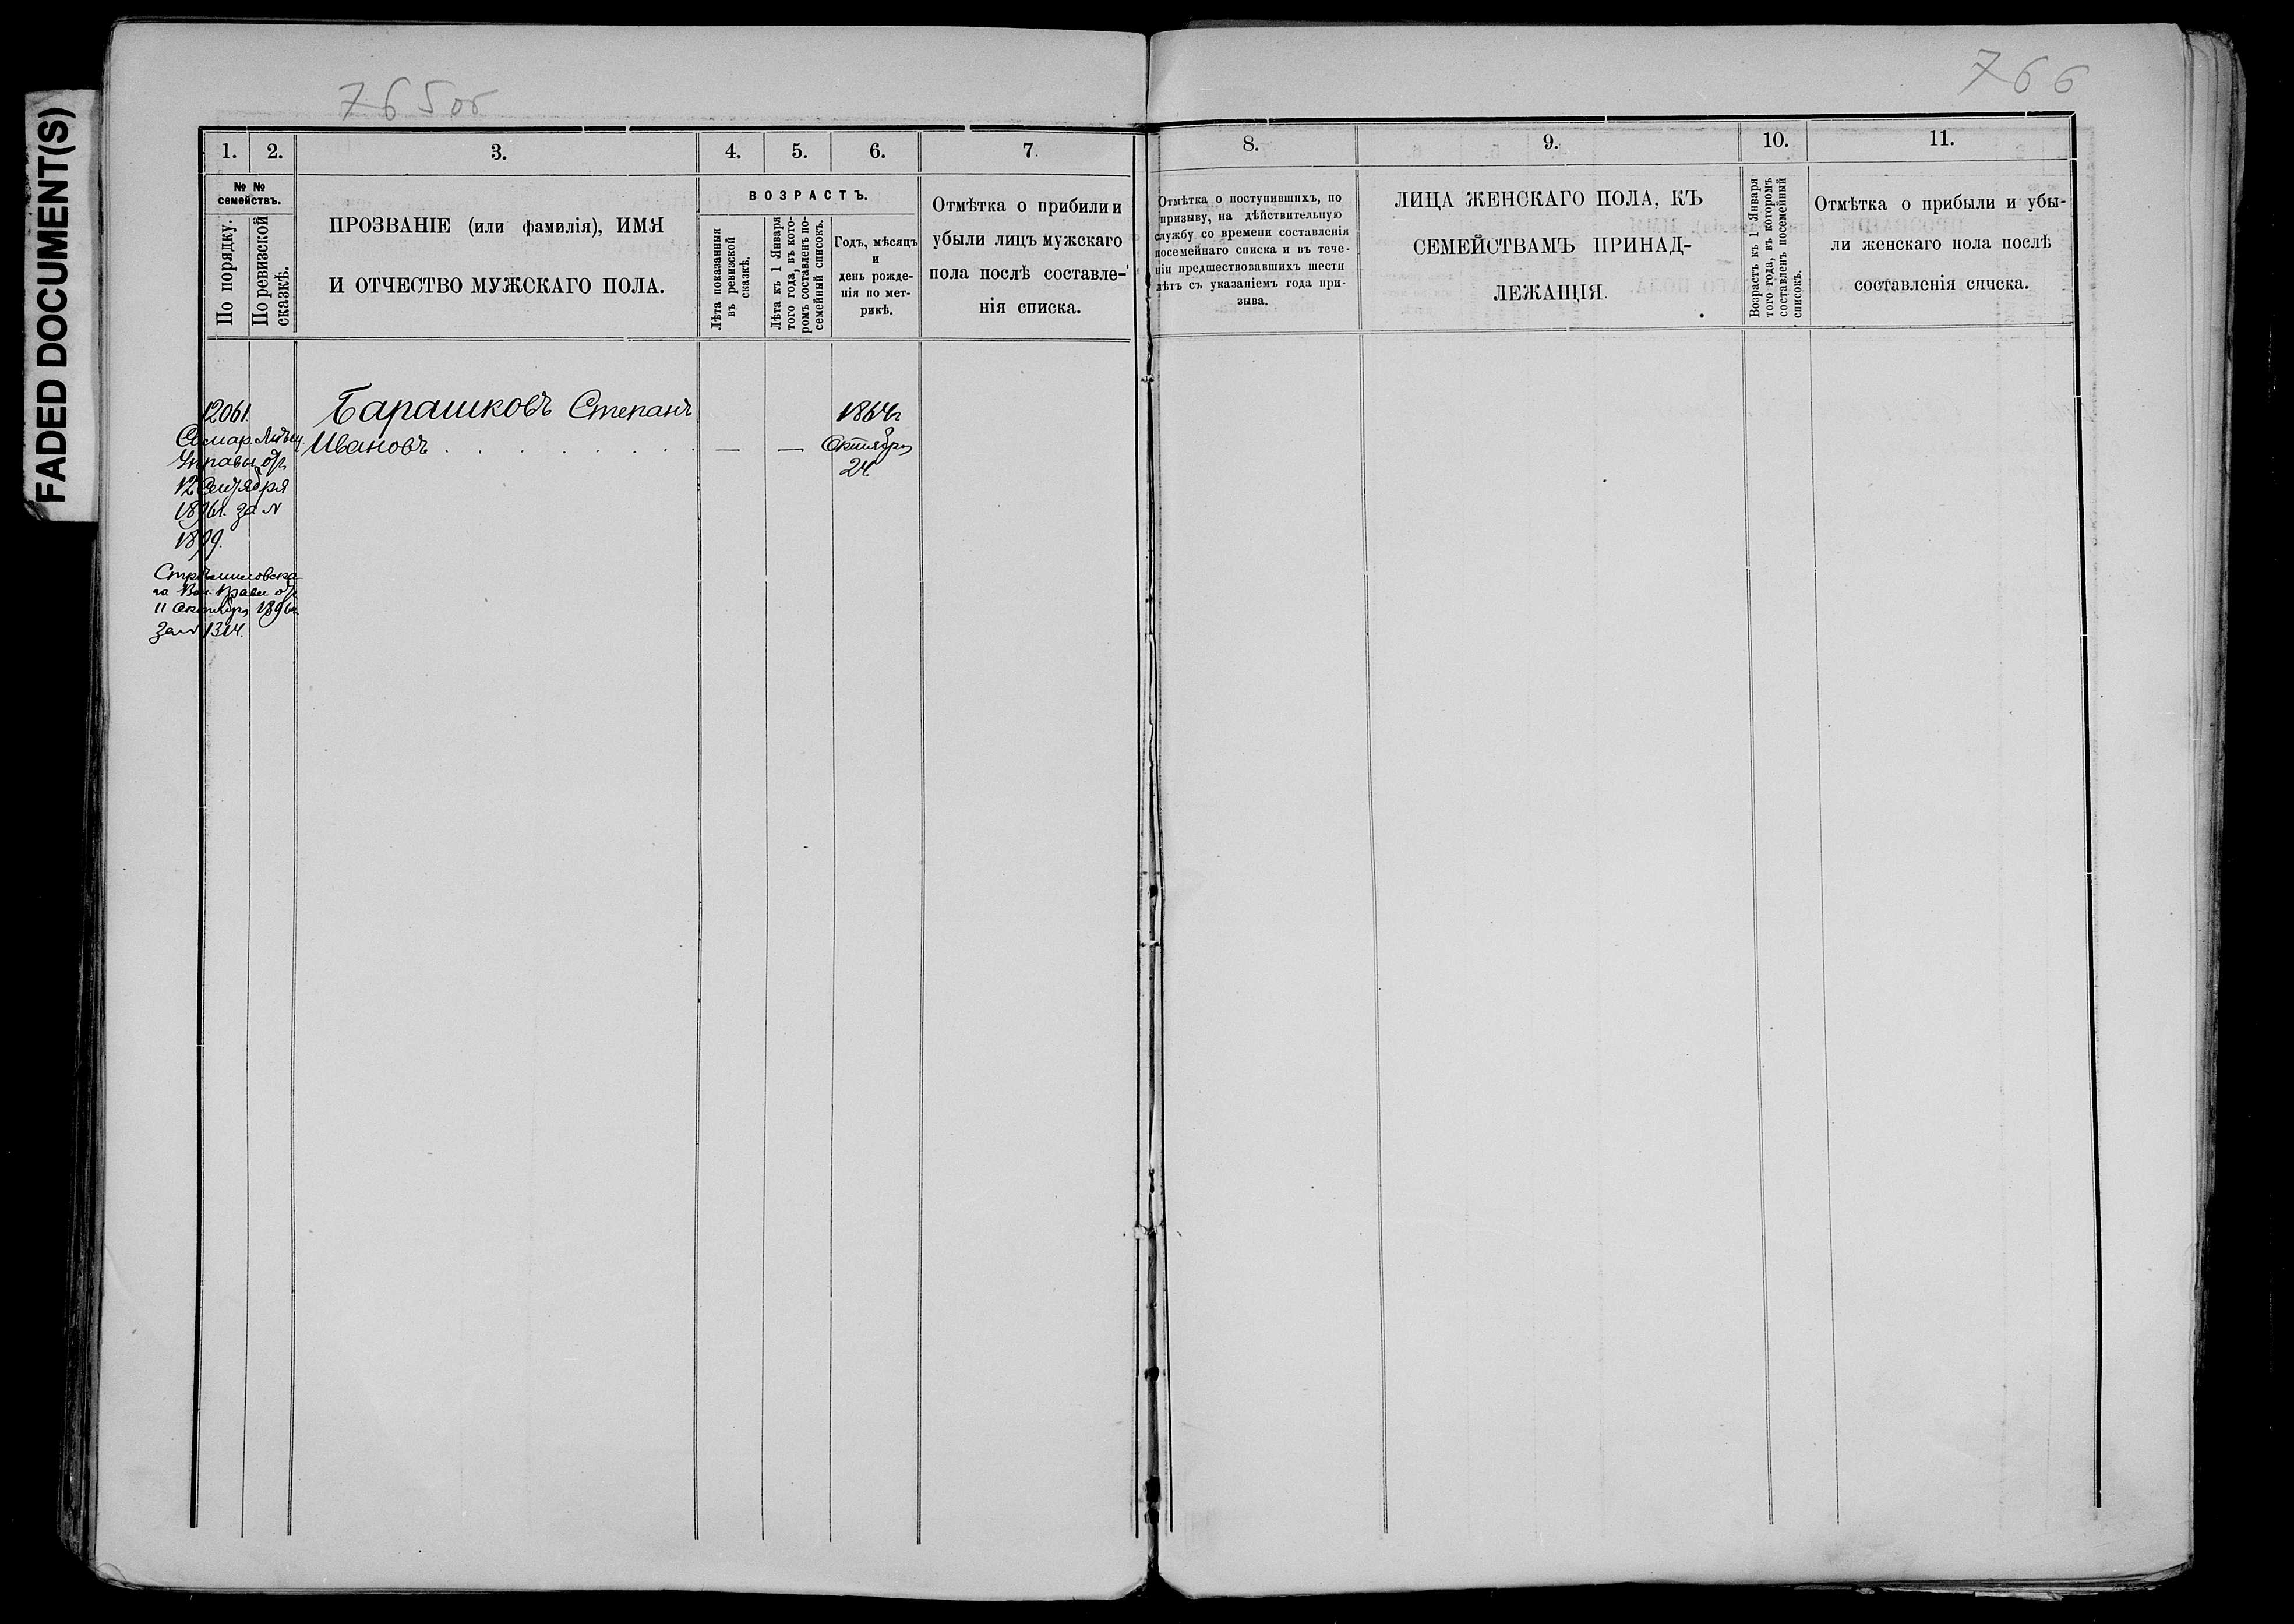 FADED DOCUMENT(S)
765об
766
1. 2. 3. 4. 5. 6. 7.
8. 9. 10. 11.
№ №
семействъ.
По порядку.
По ревизской
сказкѣ.
ПРОЗВАНІЕ (или фамилія), ИМЯ
И ОТЧЕСТВО МУЖСКАГО ПОЛА.
ВОЗРАСТЪ.
Лѣта показанныя
въ ревизской
сказкѣ.
Лѣта къ 1 Января
того года, въ кото-
ромъ составленъ по-
семейный списокъ.
Годъ, мѣсяцъ
и
день рожде-
нія по мет-
рикѣ.
Отмѣтка о прибили и
убыли лицъ мужскаго
пола послѣ составле-
нія списка.
Отмѣтка о поступившихъ, по
призыву, на дѣйствительную
службу со времени составленія
посемейнаго списка и въ тече-
ніи предшествовавшихъ шести
лѣтъ съ указаніемъ года при-
зыва.
ЛИЦА ЖЕНСКАГО ПОЛА, КЪ
СЕМЕЙСТВАМЪ ПРИНАД-
ЛЕЖАЩІЯ.
Возрастъ къ 1 Января
того года, въ которомъ
составленъ посемейный
списокъ.
Отмѣтка о прибыли и убы-
ли женскаго пола послѣ
составленія списка.
12061.
Барашковъ Степанъ
Ивановъ . . . . . . . — —
1864г
Октября
24.
Самар.
Управы от
12 Сентября
1896г. за №
1899.
Вол. Правл от
11 Октября 1896г.
за № 1314.